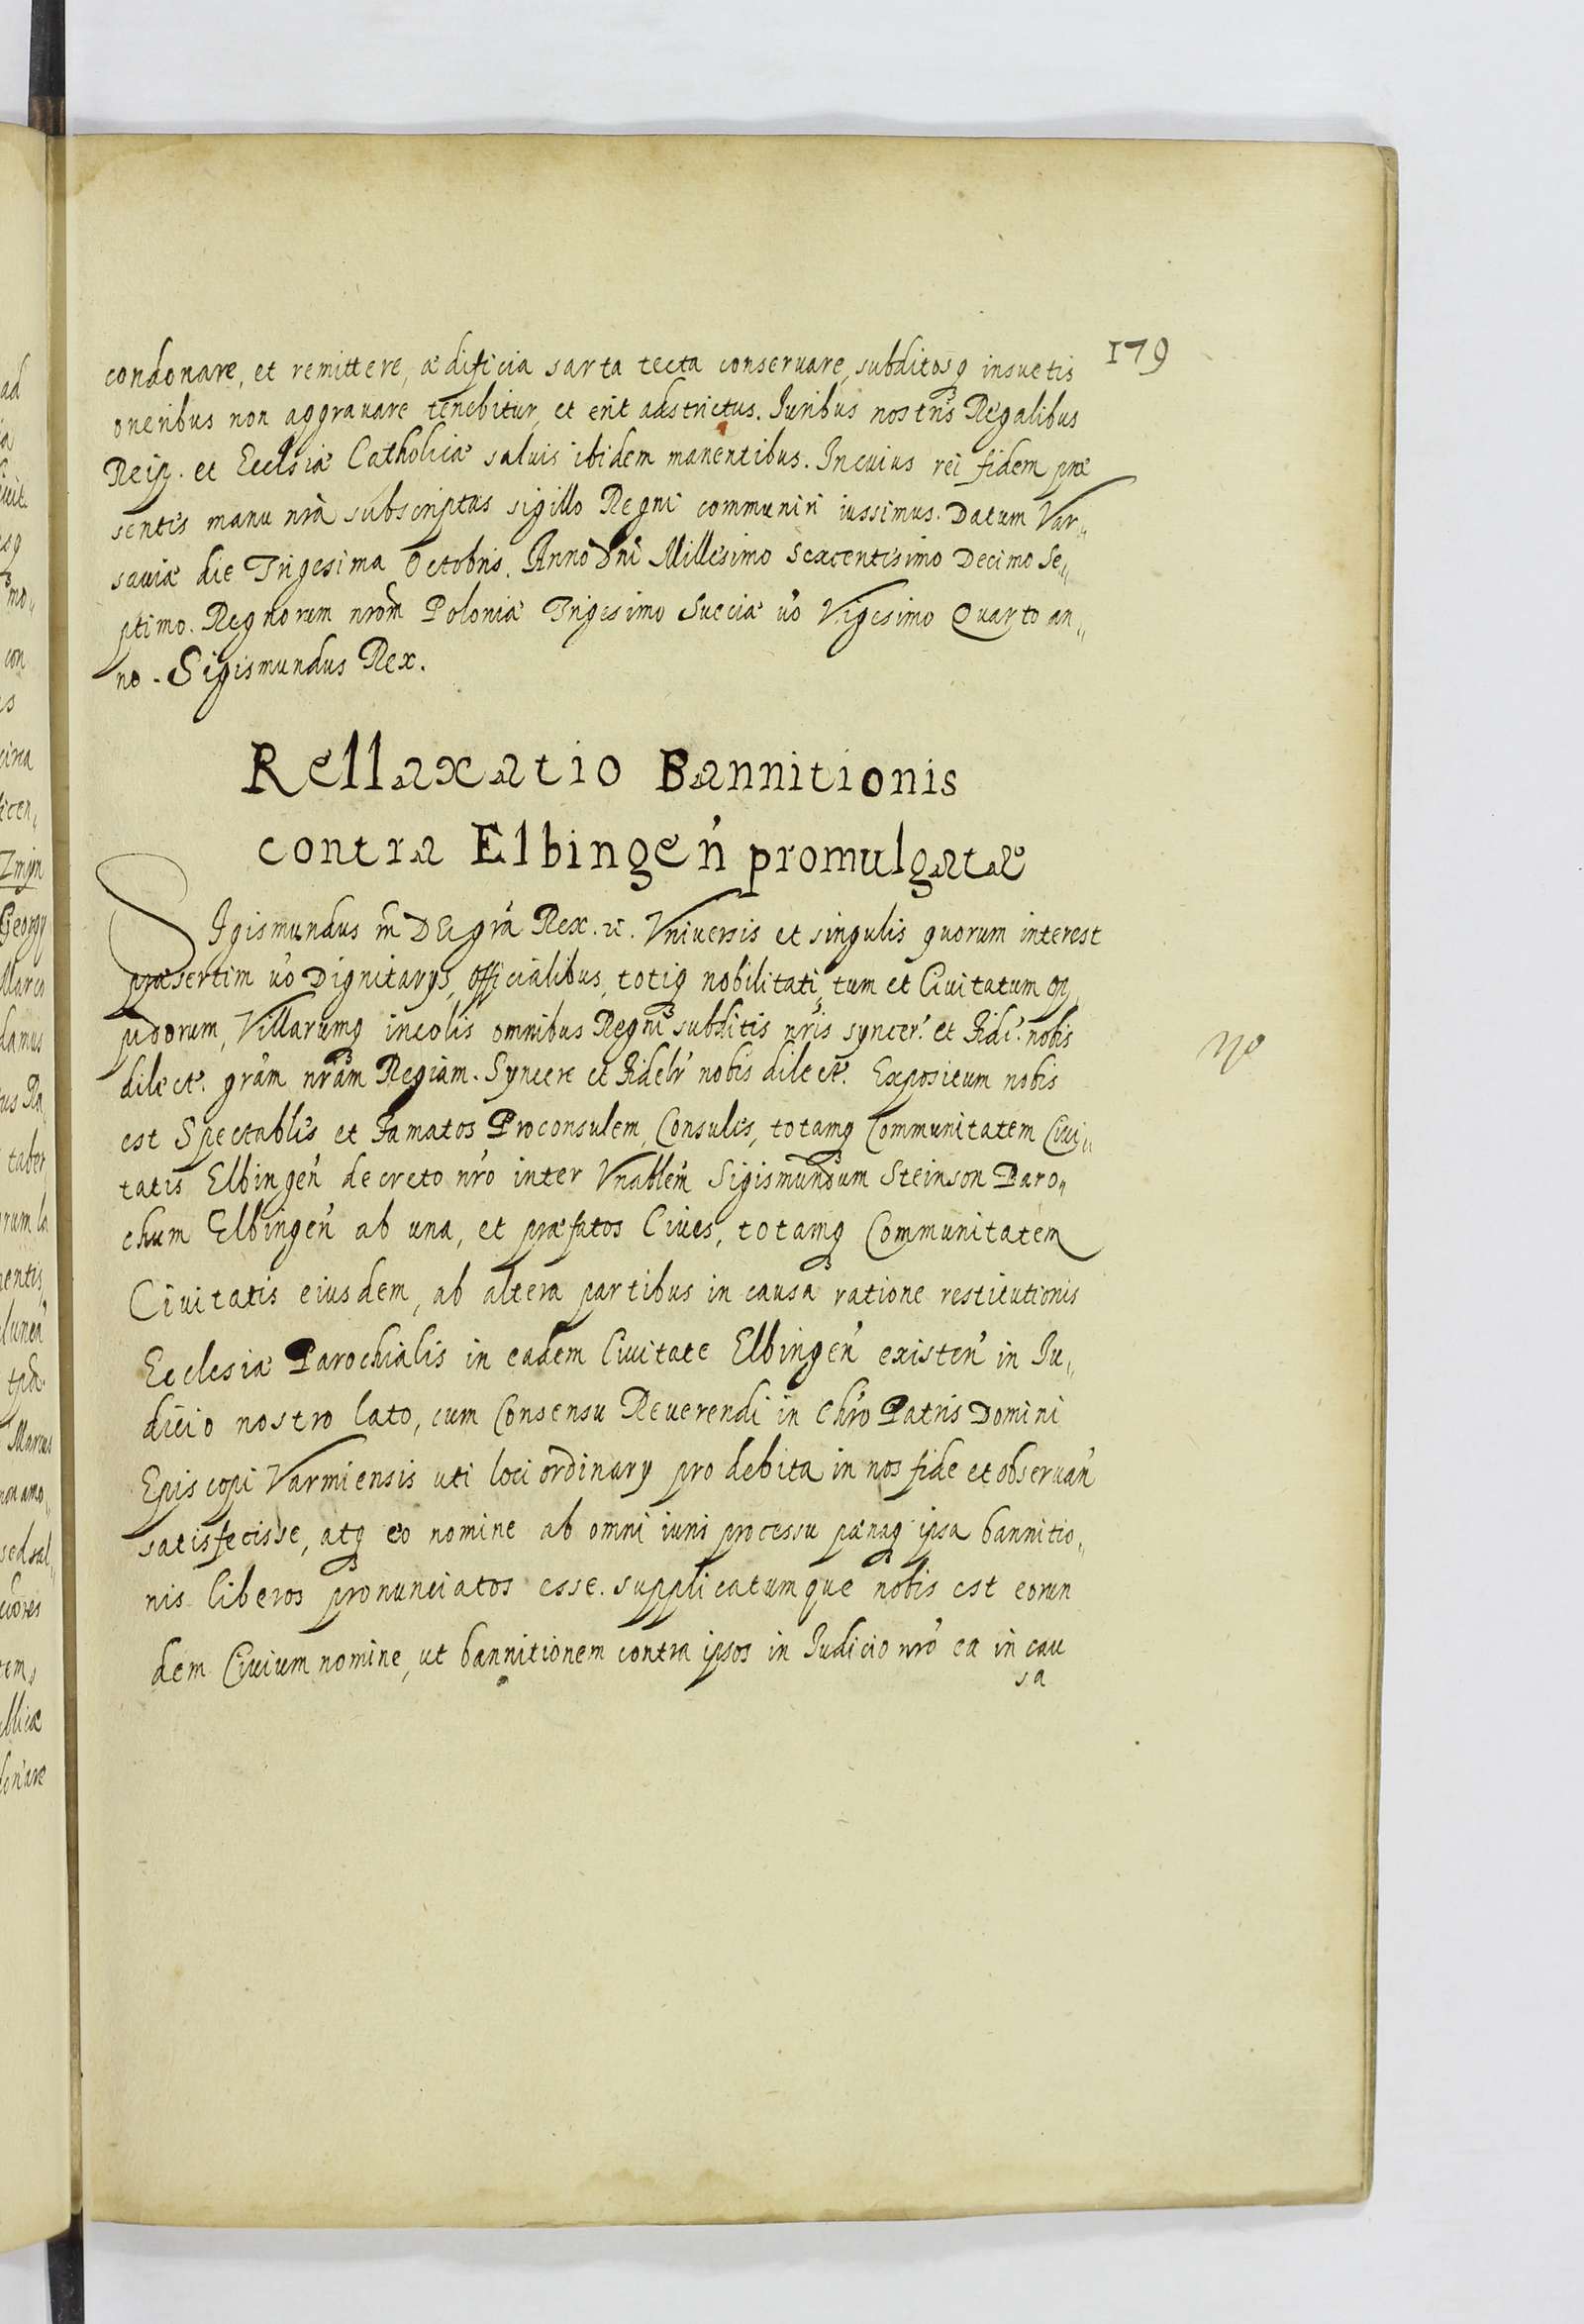 179
condonare, et remittere, ædificia sarta tecta conseruare, subditosq₃ insuetis
oneribus non aggrauare tenebitur, et erit adstrictus. Juribus nostris Regalibus
Reip. et Ecclsiæ Catholicæ saluis ibidem manentibus. In cuius rei fidem præ
sentes manu nrà subscriptas sigillo Regni communiri iussimus. Datum Var„
sauiæ die Trigesima Octobris. Anno Dni Millesimo Sexcentesimo Decimo Se„
ptimo. Regnorum nrom Poloniæ Trigesimo Sueciæ vo Vigesimo Quarto an„
no. Sigismundus Rex.
Rellaxatio Bannitionis
contra Elbingen̉ promulgatæ
SIgismundus III DEI grà Rex. Vniuersis et singulis quorum interest
præsertim vo Dignitarys, officialibus, totiq₃ nobilitati, tum et Ciuitatum op
pidorum, Villarumq₃ incolis omnibus Regni subditis nris syncer. et Fidel. nobis
dilect. gràm nràm Regiam. Syncere et Fideles nobis dilecti. Expositum nobis
est Spectabls et Famatos Proconsulem, Consules, totamq₃ Communitatem Ciui„
tatis Elbingen̉ decreto nro inter Vnablem Sigismundum Steinson Paro„
chum Elbingen̉ ab una, et præfatos Ciues, totamq₃ Communitatem
Ciuitatis eiusdem, ab altera partibus in causa ratione restitutionis
Ecclesiæ Parochialis in eadem Ciuitate Elbingen̉ existen̉ in Ju„
dicio nostro lato, cum Consensu Reuerendi in Chro Patris Domini
Episcopi Varmiensis uti loci ordinary pro debita in nos fide et obseruan̉
satisfecisse, atq₃ eo nomine ab omni iuris processu pænaq₃ ipsa bannitio„
nis liberos pronunciatos esse. supplicatumque nobis est eorun
dem Ciuium nomine, ut bannitionem contra ipsos in Judicio nro ea in cau
sa